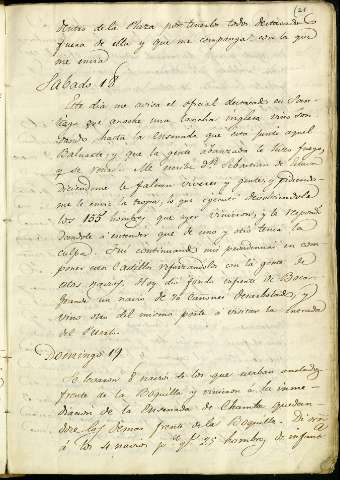 (21
dentro de la Plaza por tenerlos todos destacados
fuera de ella y que me componga con la que
me envia
Sabado 18
Este dia me avisa el oficial destacado en San-
tiago que anoche una lancha inglesa vino son-
dando hasta la Ensenada que esta junto aquel
Baluarte, y que la gente abanzada le hizo fuego,
y se retiró. Me escribe Dn Sebastian de
diciendome le faltan viveres y gente, y pidiendo-
me le envie la tropa, lo que ejecuté
los 155 hombres que ayer vinieron, y le respondi
dandole á entender que de uno y otro tenia la
culpa. Fui continuando mis providencias en com-
poner este Castillo reforzandolo con la gente de
estos navios. Hoy dia fondeó enfrente de Boca-
grande un navio de 70 cañones desarbolado, y
vino otro del mismo porte á visitar la Ensenada
del Puerto.
Domingo 19
Se levaron 8 navios de los que estaban anclados
frente de la Boquilla y vinieron á la inme-
diacion de la Ensenada de Chamba quedan-
dose los demas frente de la Boquilla. Di
á los 4 navios pa. qe. 25 hombres de infant